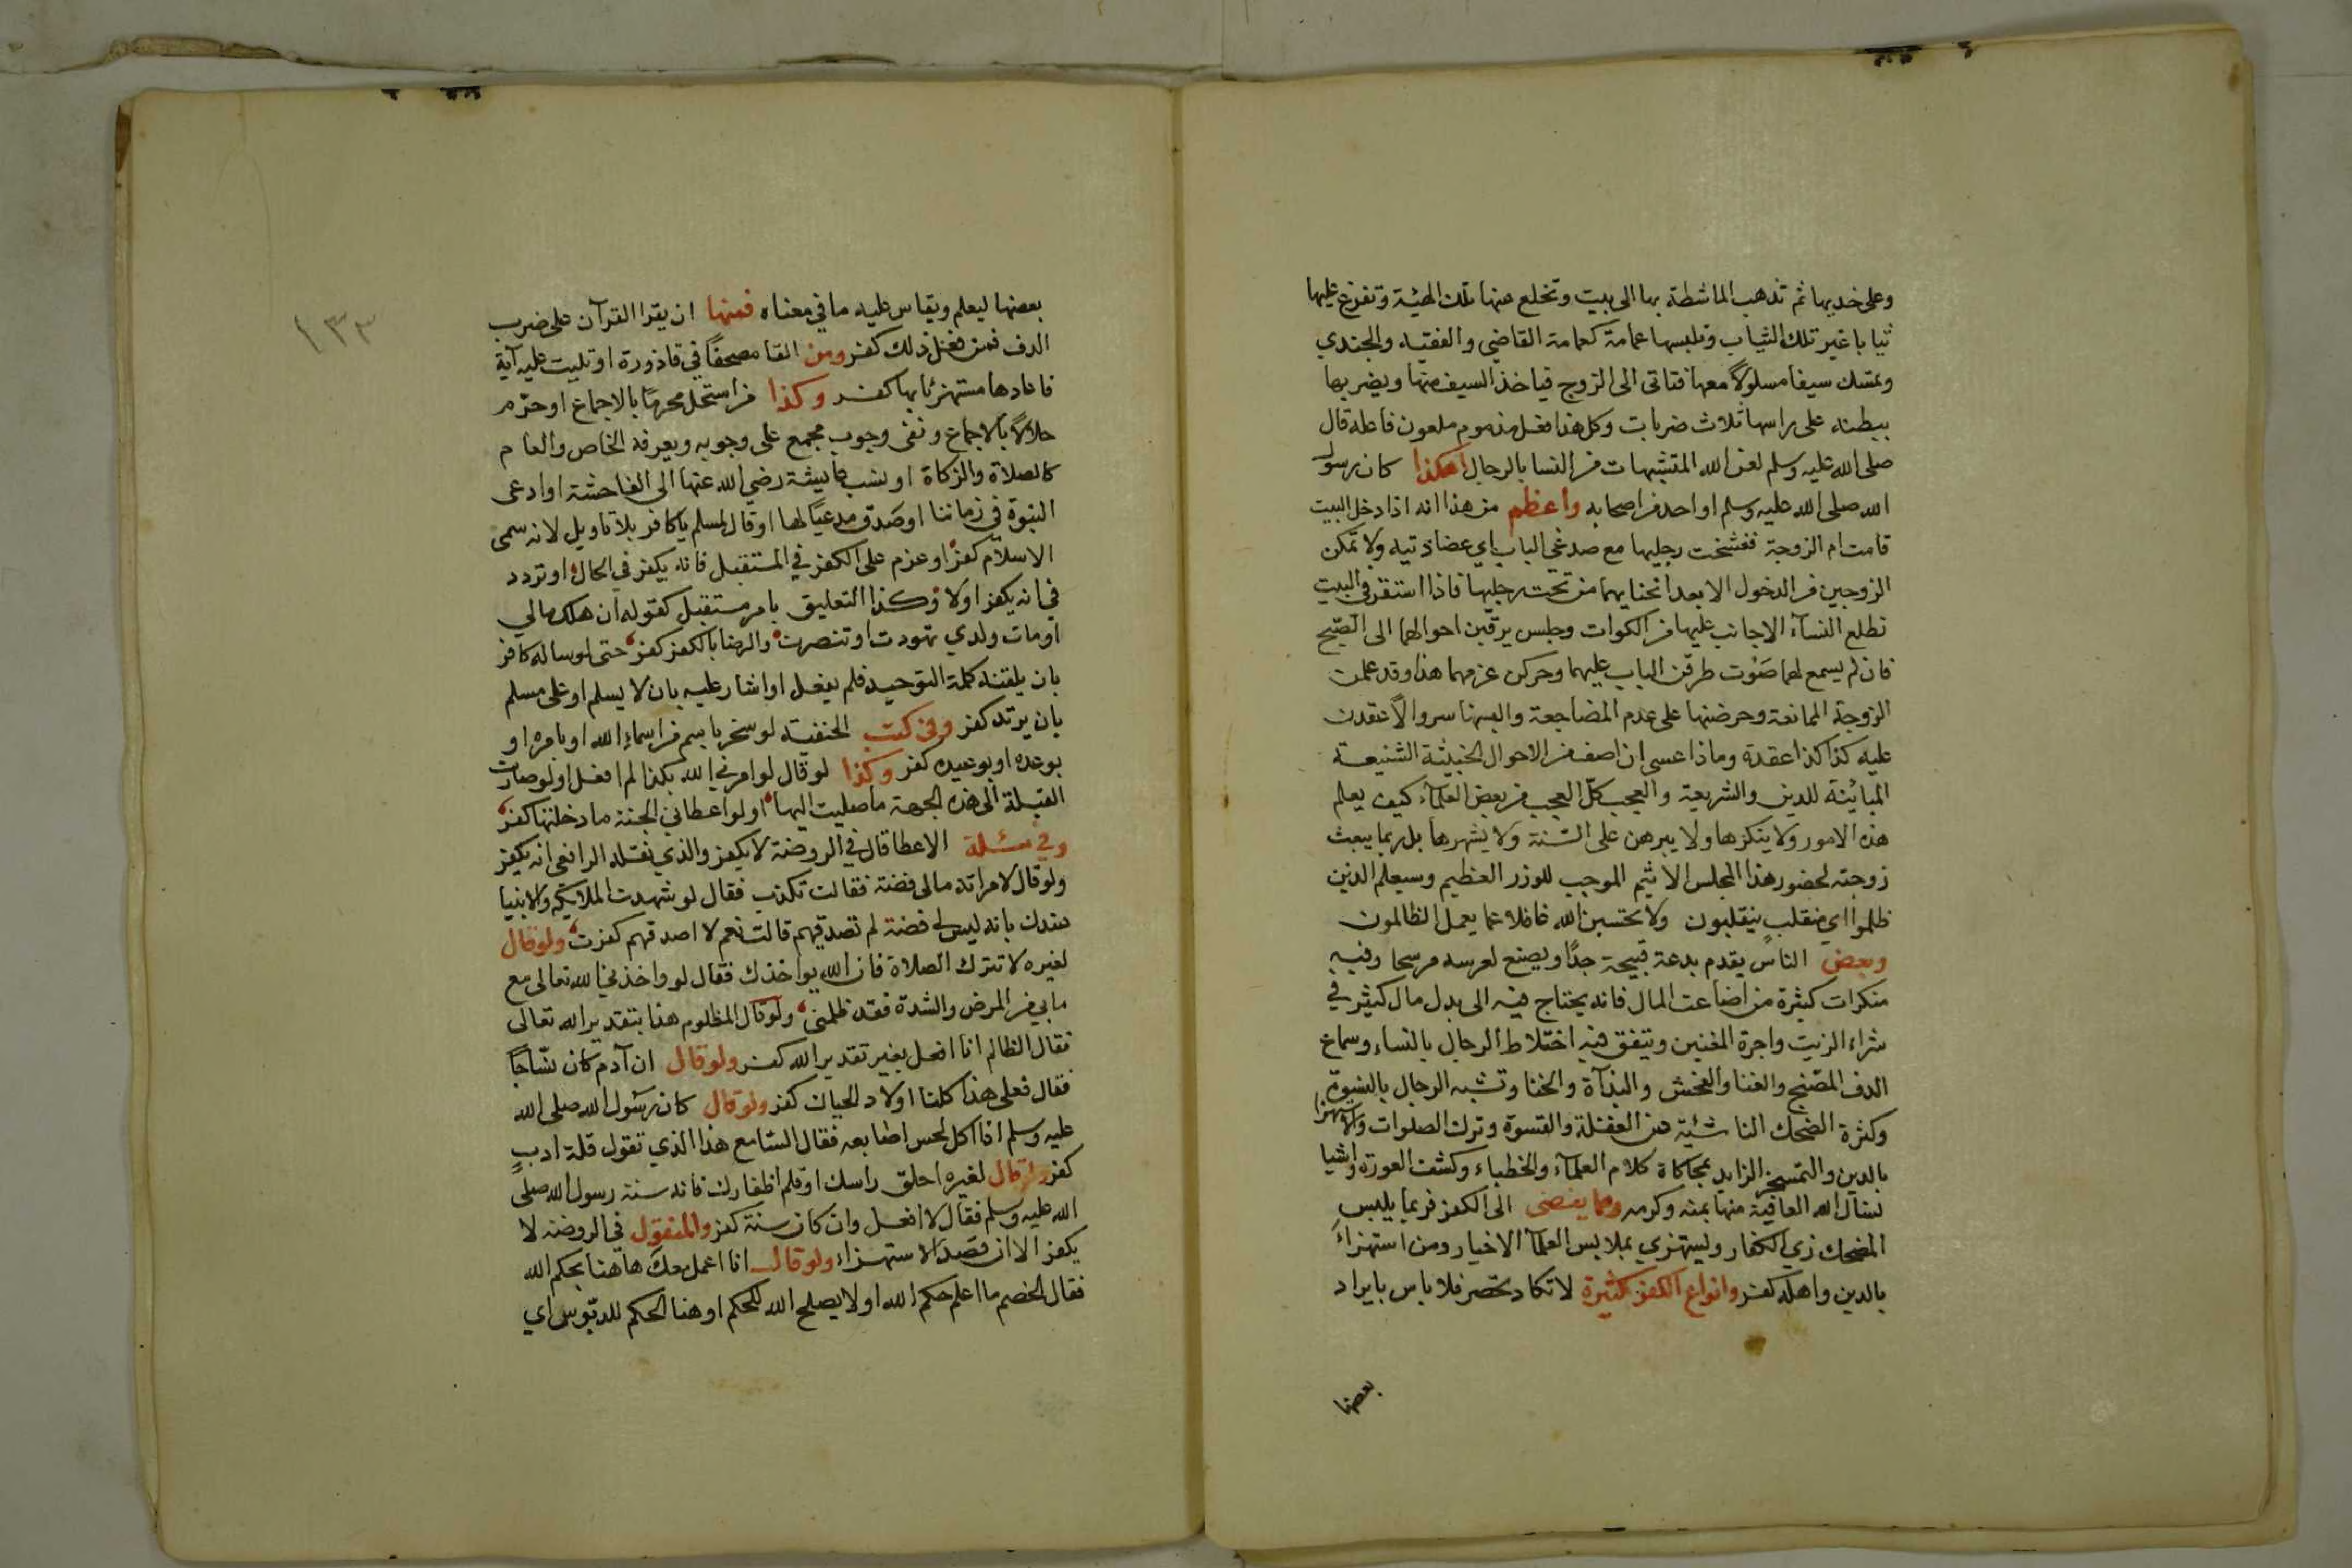 وعلى خديها ثم تذهب الماشطة بها الى بيت وتخلع عنها تلك الهيئة وتفرغ عليها
ثيابا غير تلك الثياب وتلبسها عمامة كعمامة القاضي والفقيه والجندي
وتمسك سيفا مسلولاً معها فتاتى الى الزوج فياخذ السيف منها ويضربها
ببطنه على راسها ثلاث ضربات وكل هذا فعل مذموم ملعون فاعله قال
صلى الله عليه وسلم لعن الله المتشبهات من النسا بالرجال اهكذا كان رسول
الله صلى الله عليه وسلم او احد من اصحابه واعظم من هذا انه اذا دخل البيت
قامت ام الزوجة ففشخت رجليها مع صدغي الباب اي عضادتيه ولا تمكن
الزوجين من الدخول الا بعد انحنايهما من تحت رجليها فاذا استقر في البيت
تطلع النسآء الاجانب عليها من الكوات وجلس يرقبن احوالهما الى الصبح
فان لم يسمع لهما صوت طرقن الباب عليهما وحركن عزمهما هذا وقد علمن
الزوجة الممانعة وحرضنها على عدم المضاجعة والبسنها سروالاً عقدن
عليه كذا كذا عقدة وماذا عسى ان اصف من الاحوال الخبيثة الشنيعة
المباينة للدين والشريعة والعجب كل العجب من بعض العلمآء كيف يعلم
هذه الامور ولا ينكرها ولا يبرهن على السنة ولا يشهرها بل ربما يبعث
زوجته لحضور هذا المجلس الاثيم الموجب للوزر العظيم وسيعلم الذين
ظلموا اي منقلب ينقلبون ولا تحسبن الله غافلا عما يعمل الظالمون
وبعض الناس يقدم بدعة قبيحة جدًا ويصنع لعرسه مرسحا وفيه
منكرات كثيرة من اضاعت المال فانه يحتاج فيه الى بدل مال كثير في
شراء الزيت واجرة المغنين ويتفق فيه اختلاط الرجال بالنساء وسماع
الدف المصنج والغنا والفحش والبذآة والخنا وتشبه الرجال بالنسوة
وكثرة الضحك الناشئة من الغفلة والقسوة وترك الصلوات والاستهزا
بالدين والتمسخر الزايد بمحاكاة كلام العلمآء والخطباء وكشف العورة واشيا
نسال الله العافية منها بمنه وكرمه ومما يفضى الى الكفر فربما يلبس
المضحك زي الكفار ويستهزي بملابس العلمآء الاخيار ومن استهزاء
بالدين واهله كفر وانواع الكفر كثيرة لا تكاد تحصر فلا باس بايراد
بعضها
١٣٣
بعضها ليعلم ويقاس عليه ما في معناه فمنها ان يقرا القرآن على ضرب
الدف فمن فعل ذلك كفر ومن القا مصحفاً في قاذورة او تليت عليه آية
فاعادها مستهزئا بها كفر وكذا من استحل محرمًا بالاجماع او حرّم
حلالاً بالاجماع ونفى وجوب مجمع على وجوبه ويعرفه الخاص والعام
كالصلاة والزكاة او نسب عايشة رضي الله عنها الى الفاحشة او ادعى
النبوة في زماننا او صدق مدعيًا لها او قال لمسلم يا كافر بلا تاويل لانه سمى
الاسلام كفرًا او عزم على الكفر في المستقبل فانه يكفر في الحال او تردد
في انه يكفر اولا وكذا التعليق بامر مستقبل كقوله ان هلك مالي
او مات ولدي تهودت او تنصرت والرضا بالكفر كفر حتى لو ساله كافر
بان يلقنه كلمة التوحيد فلم يفعل او اشار عليه بان لا يسلم او على مسلم
بان يرتد كفر وفي كتب الحنفية لو سخر باسم من اسماء الله او بامره او
بوعده او بوعيده كفر وكذا لو قال لو امرني الله بكذا لم افعل او لو صارت
القبلة الى هذه الجهة ما صليت اليها او لو اعطاني الجنة ما دخلتها كفر
وفي مسئلة الاعطا قال في الروضة لا يكفر والذي نقله الرافعي انه يكفر
ولو قال لامراته مالى فضة فقالت تكذب فقال لو شهدت الملايكة والانبيا
عندك بانه ليس لي فضة لم تصدقيهم قالت نعم لا اصدقهم كفرت ولو قال
لغيره لا تترك الصلاة فان الله يواخذك فقال لو واخذني الله تعالى مع
ما بي من المرض والشدة فقد ظلمني ولو قال المظلوم هذا بتقدير الله تعالى
فقال الظالم انا افعل بغير تقدير الله كفر ولو قال ان آدم كان نسّاجًا
فقال فعلى هذا كلنا اولاد الحياك كفر ولو قال كان رسول الله صلى الله
عليه وسلم اذا اكل لحس اصابعه فقال السامع هذا الذي تقول قلة ادب
كفر ولو قال لغيره احلق راسك او قلم اظفارك فانه سنة رسول الله صلى
الله عليه وسلم فقال لا افعل وان كان سنة كفر والمنقول في الروضة لا
يكفر الا ان قصد الاستهزاء ولو قال انا اعمل معك هاهنا بحكم الله
فقال الخصم ما اعلم حكم الله او لا يصلح الله للحكم او هنا الحكم للدبوس اي